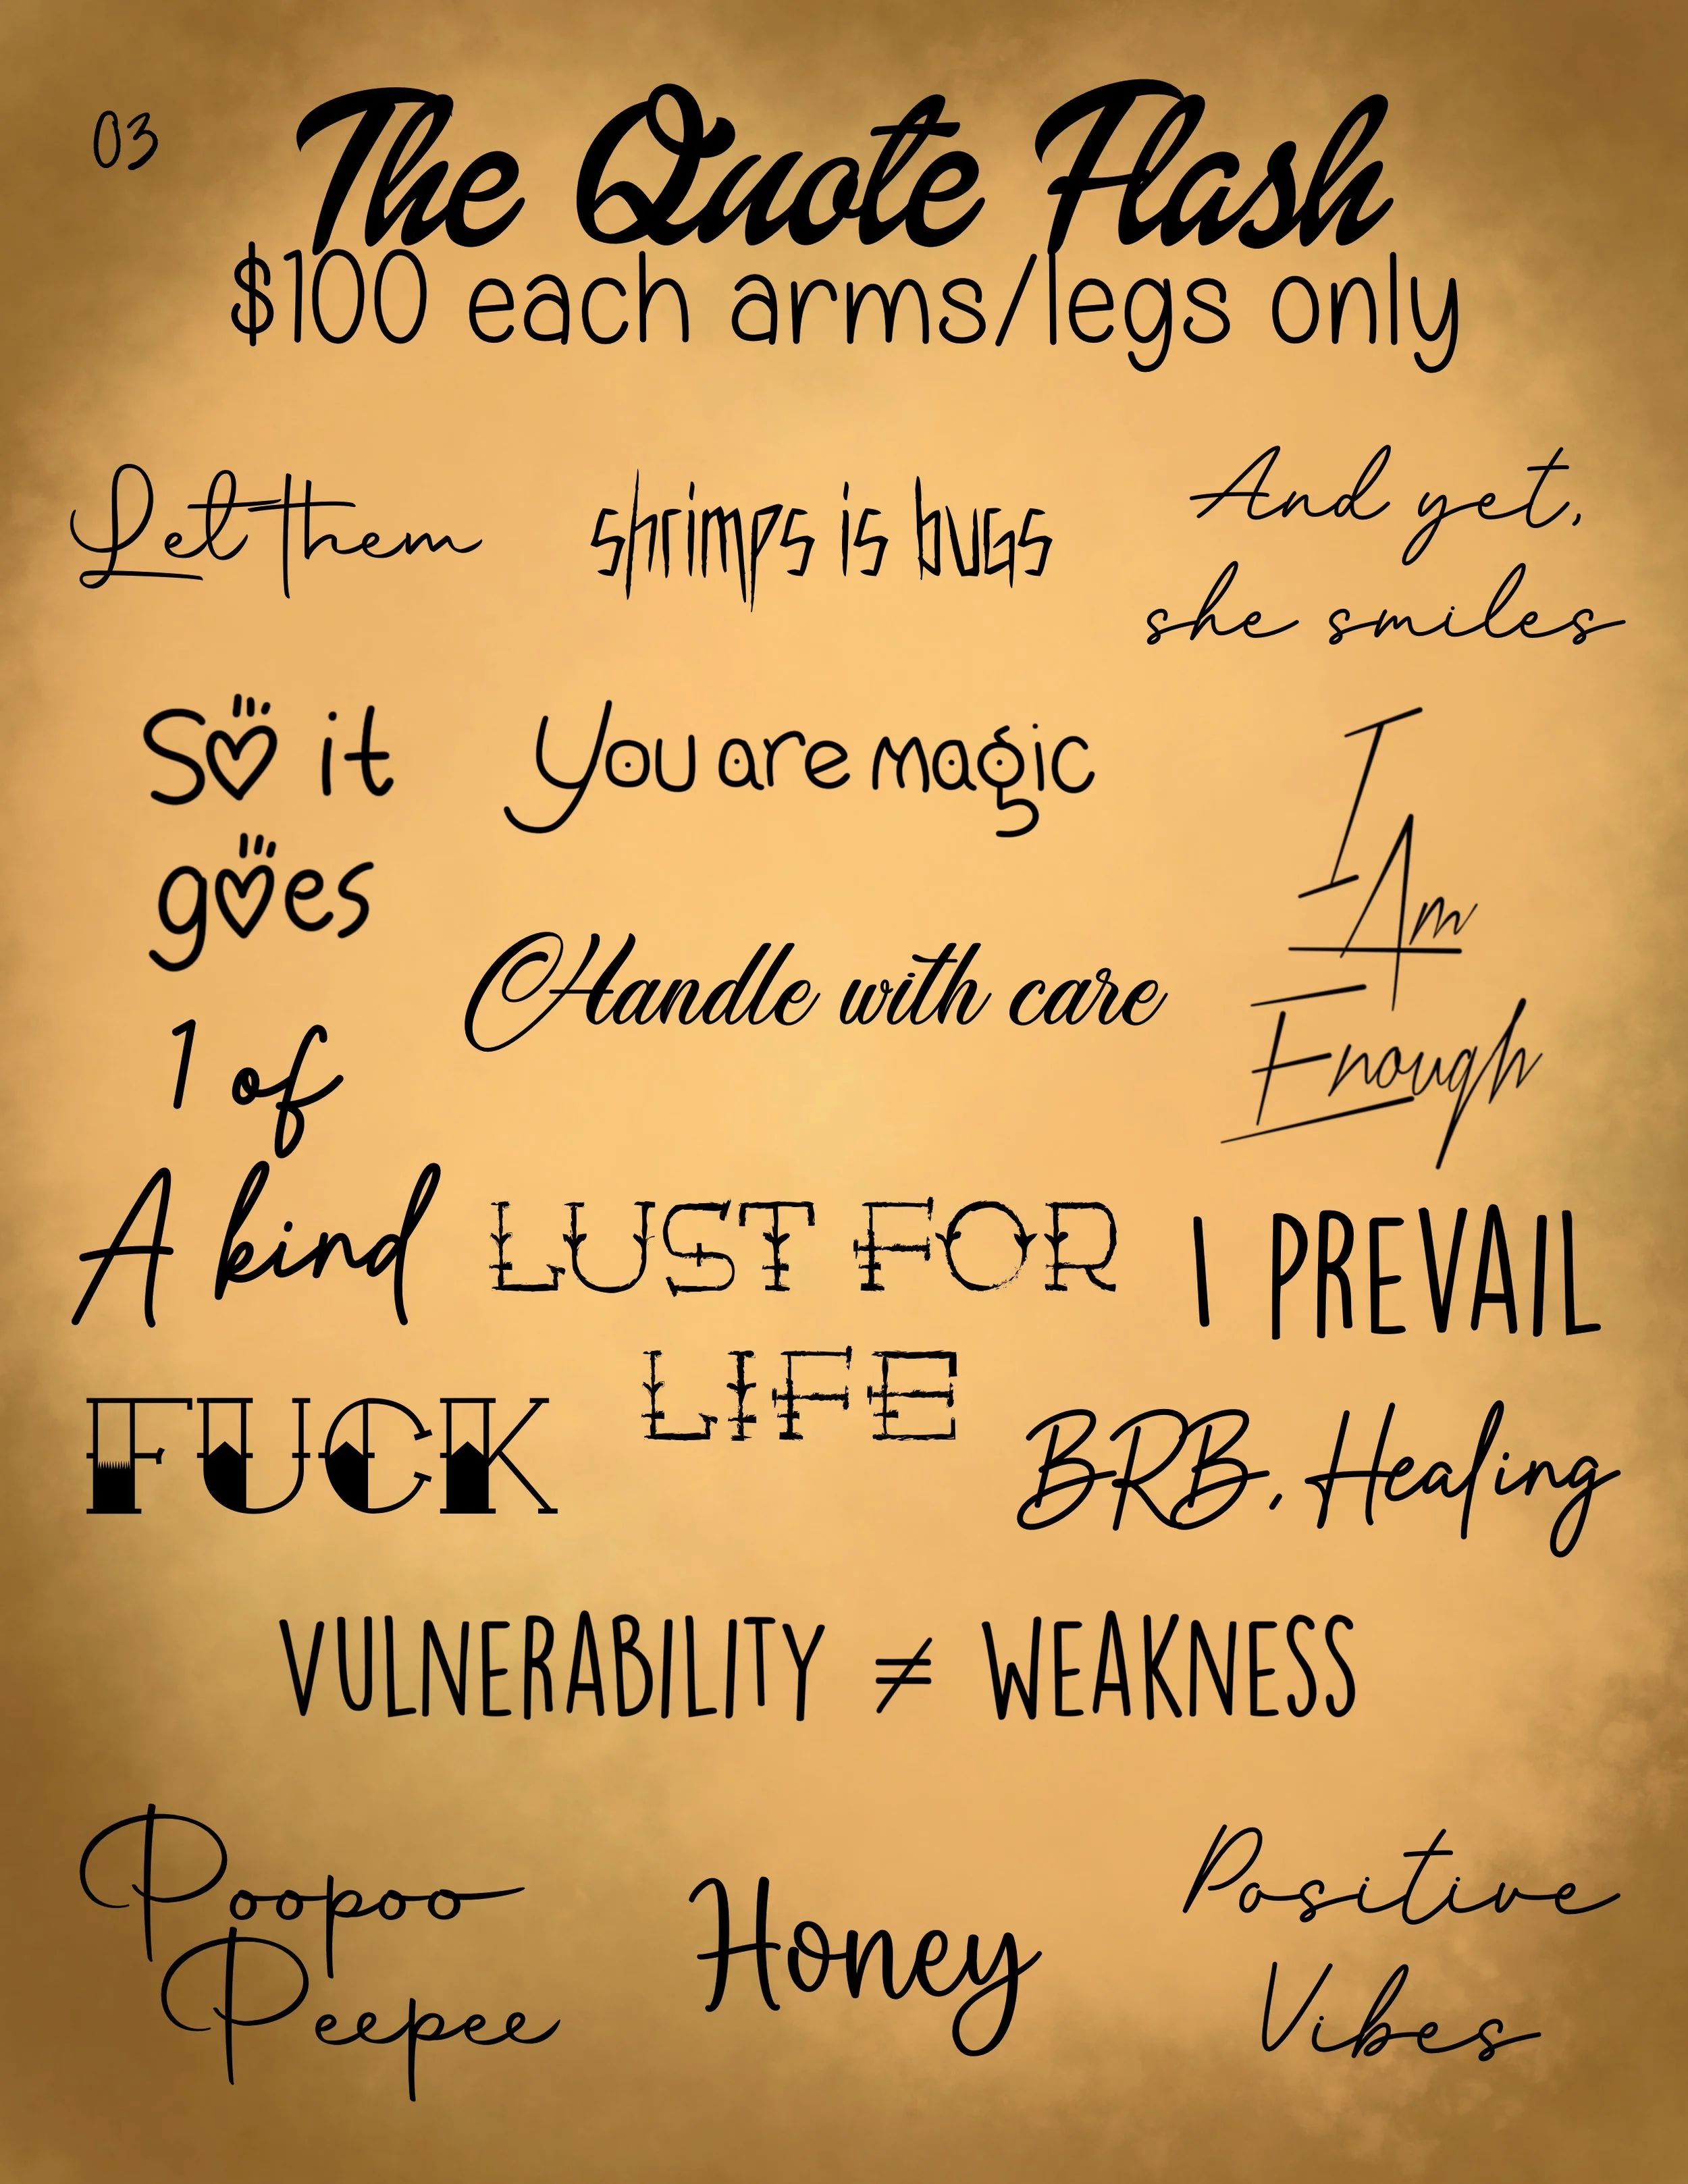 03
The Quote Flash
$100 each arms/legs only
Let them
shrimps is bugs
And yet,
she smiles
So it
goes
You are magic
I
Am
Enough
Handle with care
1 of
A kind
LUST FOR
LIFE
I PREVAIL
FUCK
BRB, Healing
VULNERABILITY ≠ WEAKNESS
Poopoo
Peepee
Honey
Positive
Vibes